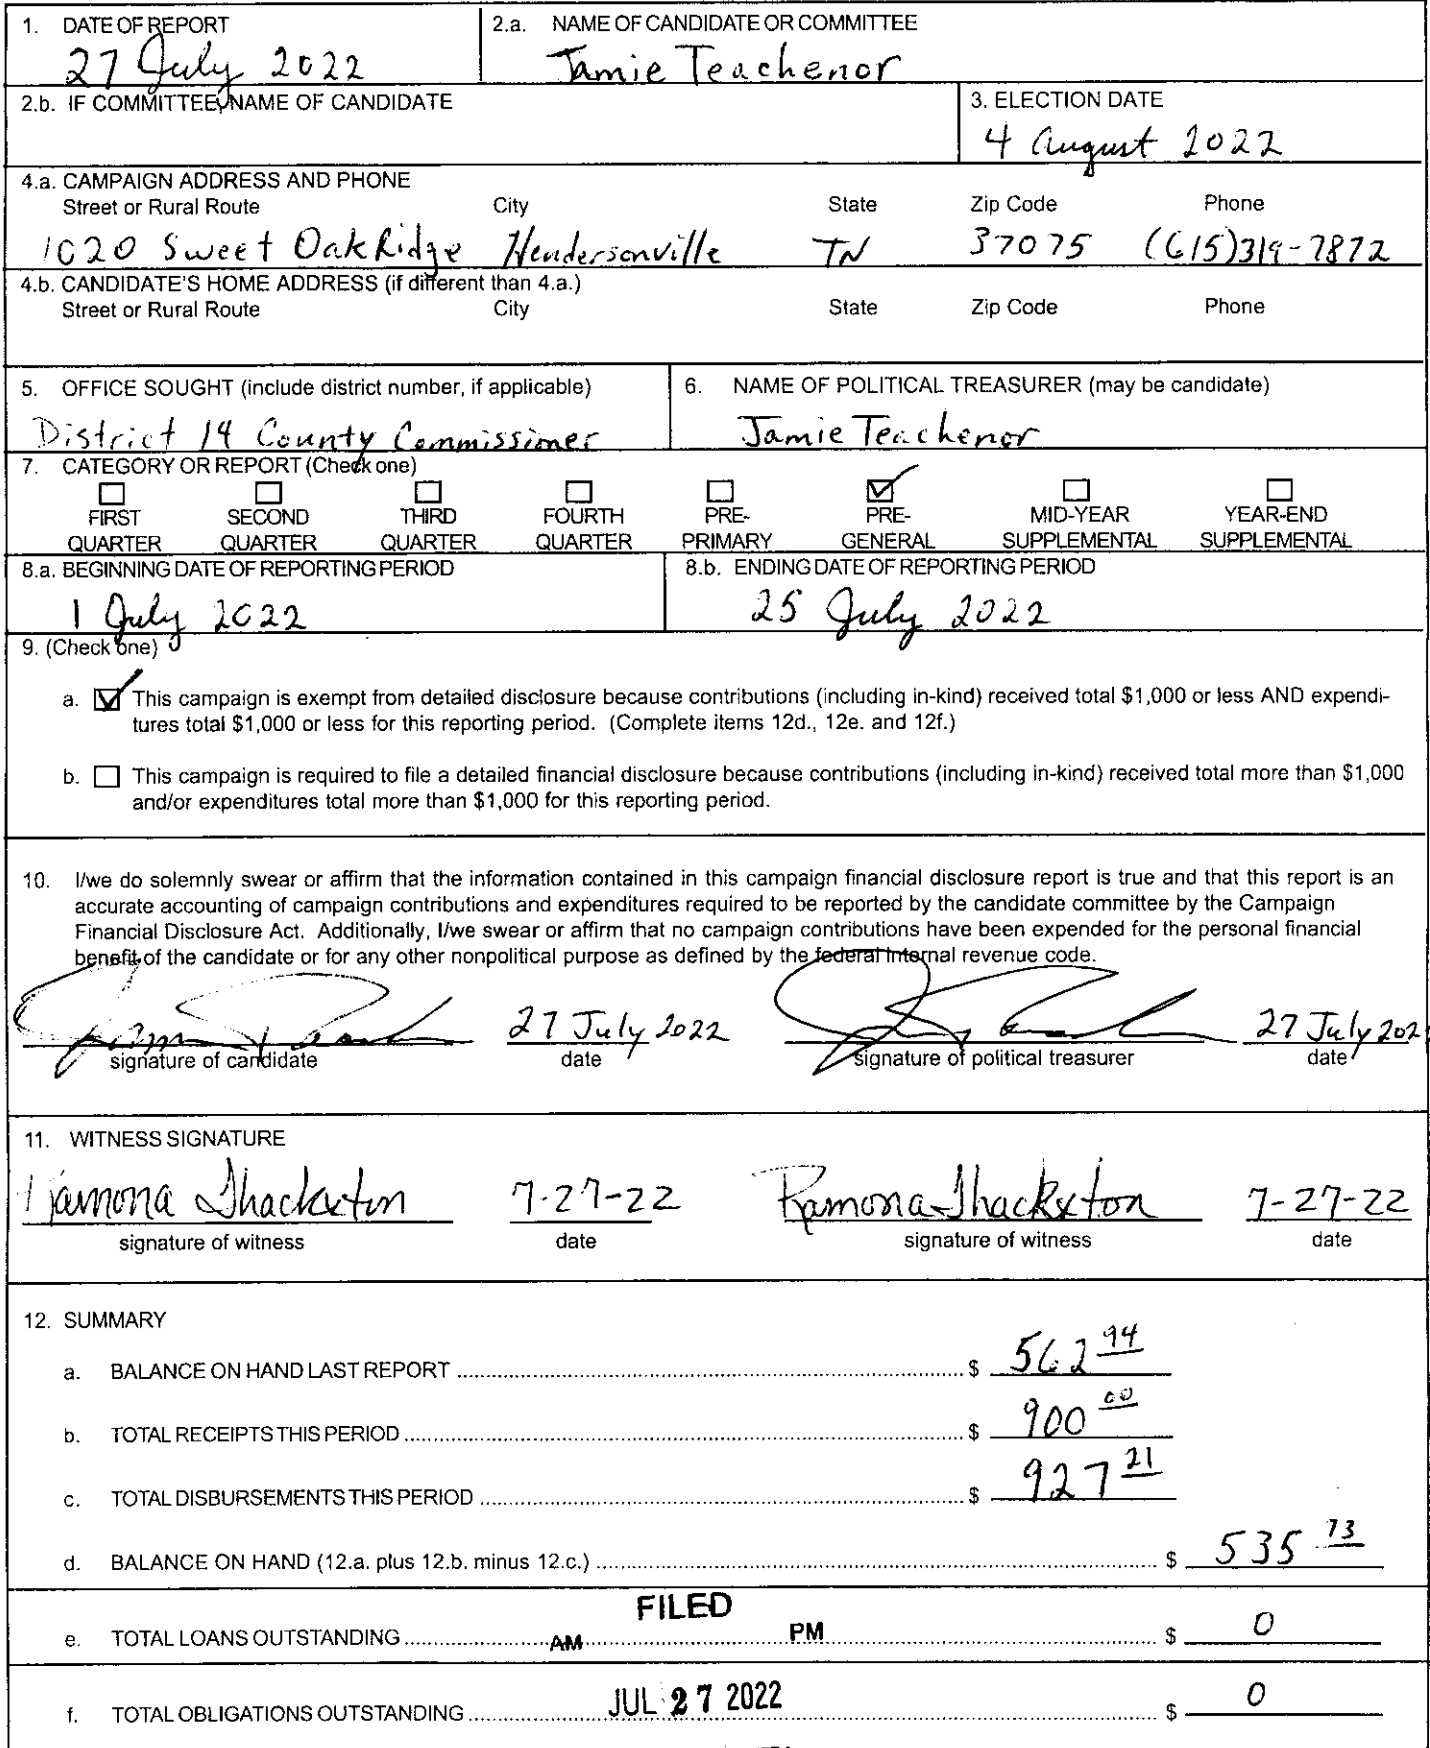 1. DATE OF REPORT
27 July 2022
2.a. NAME OF CANDIDATE OR COMMITTEE
Jamie Teachenor
2.b. IF COMMITTEE, NAME OF CANDIDATE
3. ELECTION DATE
4 August 2022
4.a. CAMPAIGN ADDRESS AND PHONE
Street or Rural Route City State Zip Code Phone
1020 Sweet Oak Ridge Hendersonville TN 37075 (615)319-7872
4.b. CANDIDATE'S HOME ADDRESS (if different than 4.a.)
Street or Rural Route City State Zip Code Phone
5. OFFICE SOUGHT (include district number, if applicable)
District 14 County Commissioner
6. NAME OF POLITICAL TREASURER (may be candidate)
Jamie Teachenor
7. CATEGORY OR REPORT (Check one)
FIRST QUARTER
SECOND QUARTER
THIRD QUARTER
FOURTH QUARTER
PRE-PRIMARY
PRE-GENERAL
MID-YEAR SUPPLEMENTAL
YEAR-END SUPPLEMENTAL
8.a. BEGINNING DATE OF REPORTING PERIOD
1 July 2022
8.b. ENDING DATE OF REPORTING PERIOD
25 July 2022
9. (Check one)
a. This campaign is exempt from detailed disclosure because contributions (including in-kind) received total $1,000 or less AND expendi-
tures total $1,000 or less for this reporting period. (Complete items 12d., 12e. and 12f.)
b. This campaign is required to file a detailed financial disclosure because contributions (including in-kind) received total more than $1,000
and/or expenditures total more than $1,000 for this reporting period.
10. I/we do solemnly swear or affirm that the information contained in this campaign financial disclosure report is true and that this report is an
accurate accounting of campaign contributions and expenditures required to be reported by the candidate committee by the Campaign
Financial Disclosure Act. Additionally, I/we swear or affirm that no campaign contributions have been expended for the personal financial
benefit of the candidate or for any other nonpolitical purpose as defined by the federal internal revenue code.
27 July 2022 27 July 202
signature of candidate date signature of political treasurer date
11. WITNESS SIGNATURE
Ramona Thackxton 7-27-22 Ramona Thackxton 7-27-22
signature of witness date signature of witness date
12. SUMMARY
a. BALANCE ON HAND LAST REPORT $ 562 94
b. TOTAL RECEIPTS THIS PERIOD $ 900 00
c. TOTAL DISBURSEMENTS THIS PERIOD $ 927 21
d. BALANCE ON HAND (12.a. plus 12.b. minus 12.c.) $ 535 73
FILED
e. TOTAL LOANS OUTSTANDING AM PM $ 0
f. TOTAL OBLIGATIONS OUTSTANDING JUL 27 2022 $ 0